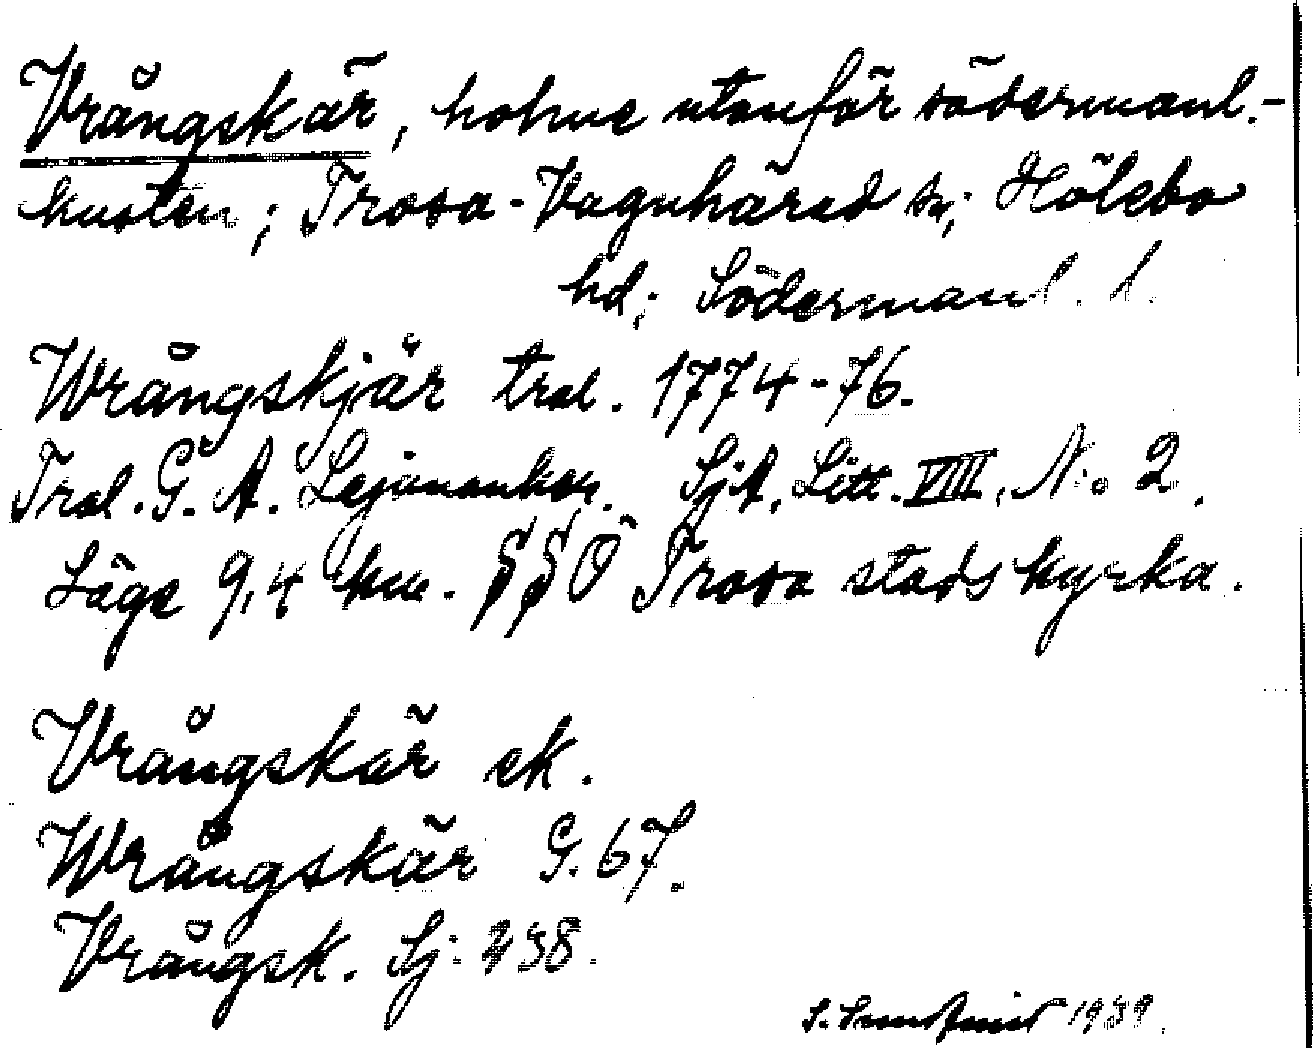 Vrångskär, holme utanför södermanl.-
kusten; Trosa-Vagnhärad sn; Hölebo
hd; Södermanl. l.
Wrångskjär tral. 1774-76.
Tral. G. A. Lejonankar. SjA, Litt. VIII, No 2.
Läge 9,4 km. SSÖ Trosa stadskyrka.
Vrångskär ek.
Wrångskär G. 67.
Vrångsk. Sj: 438.
S. 1939.